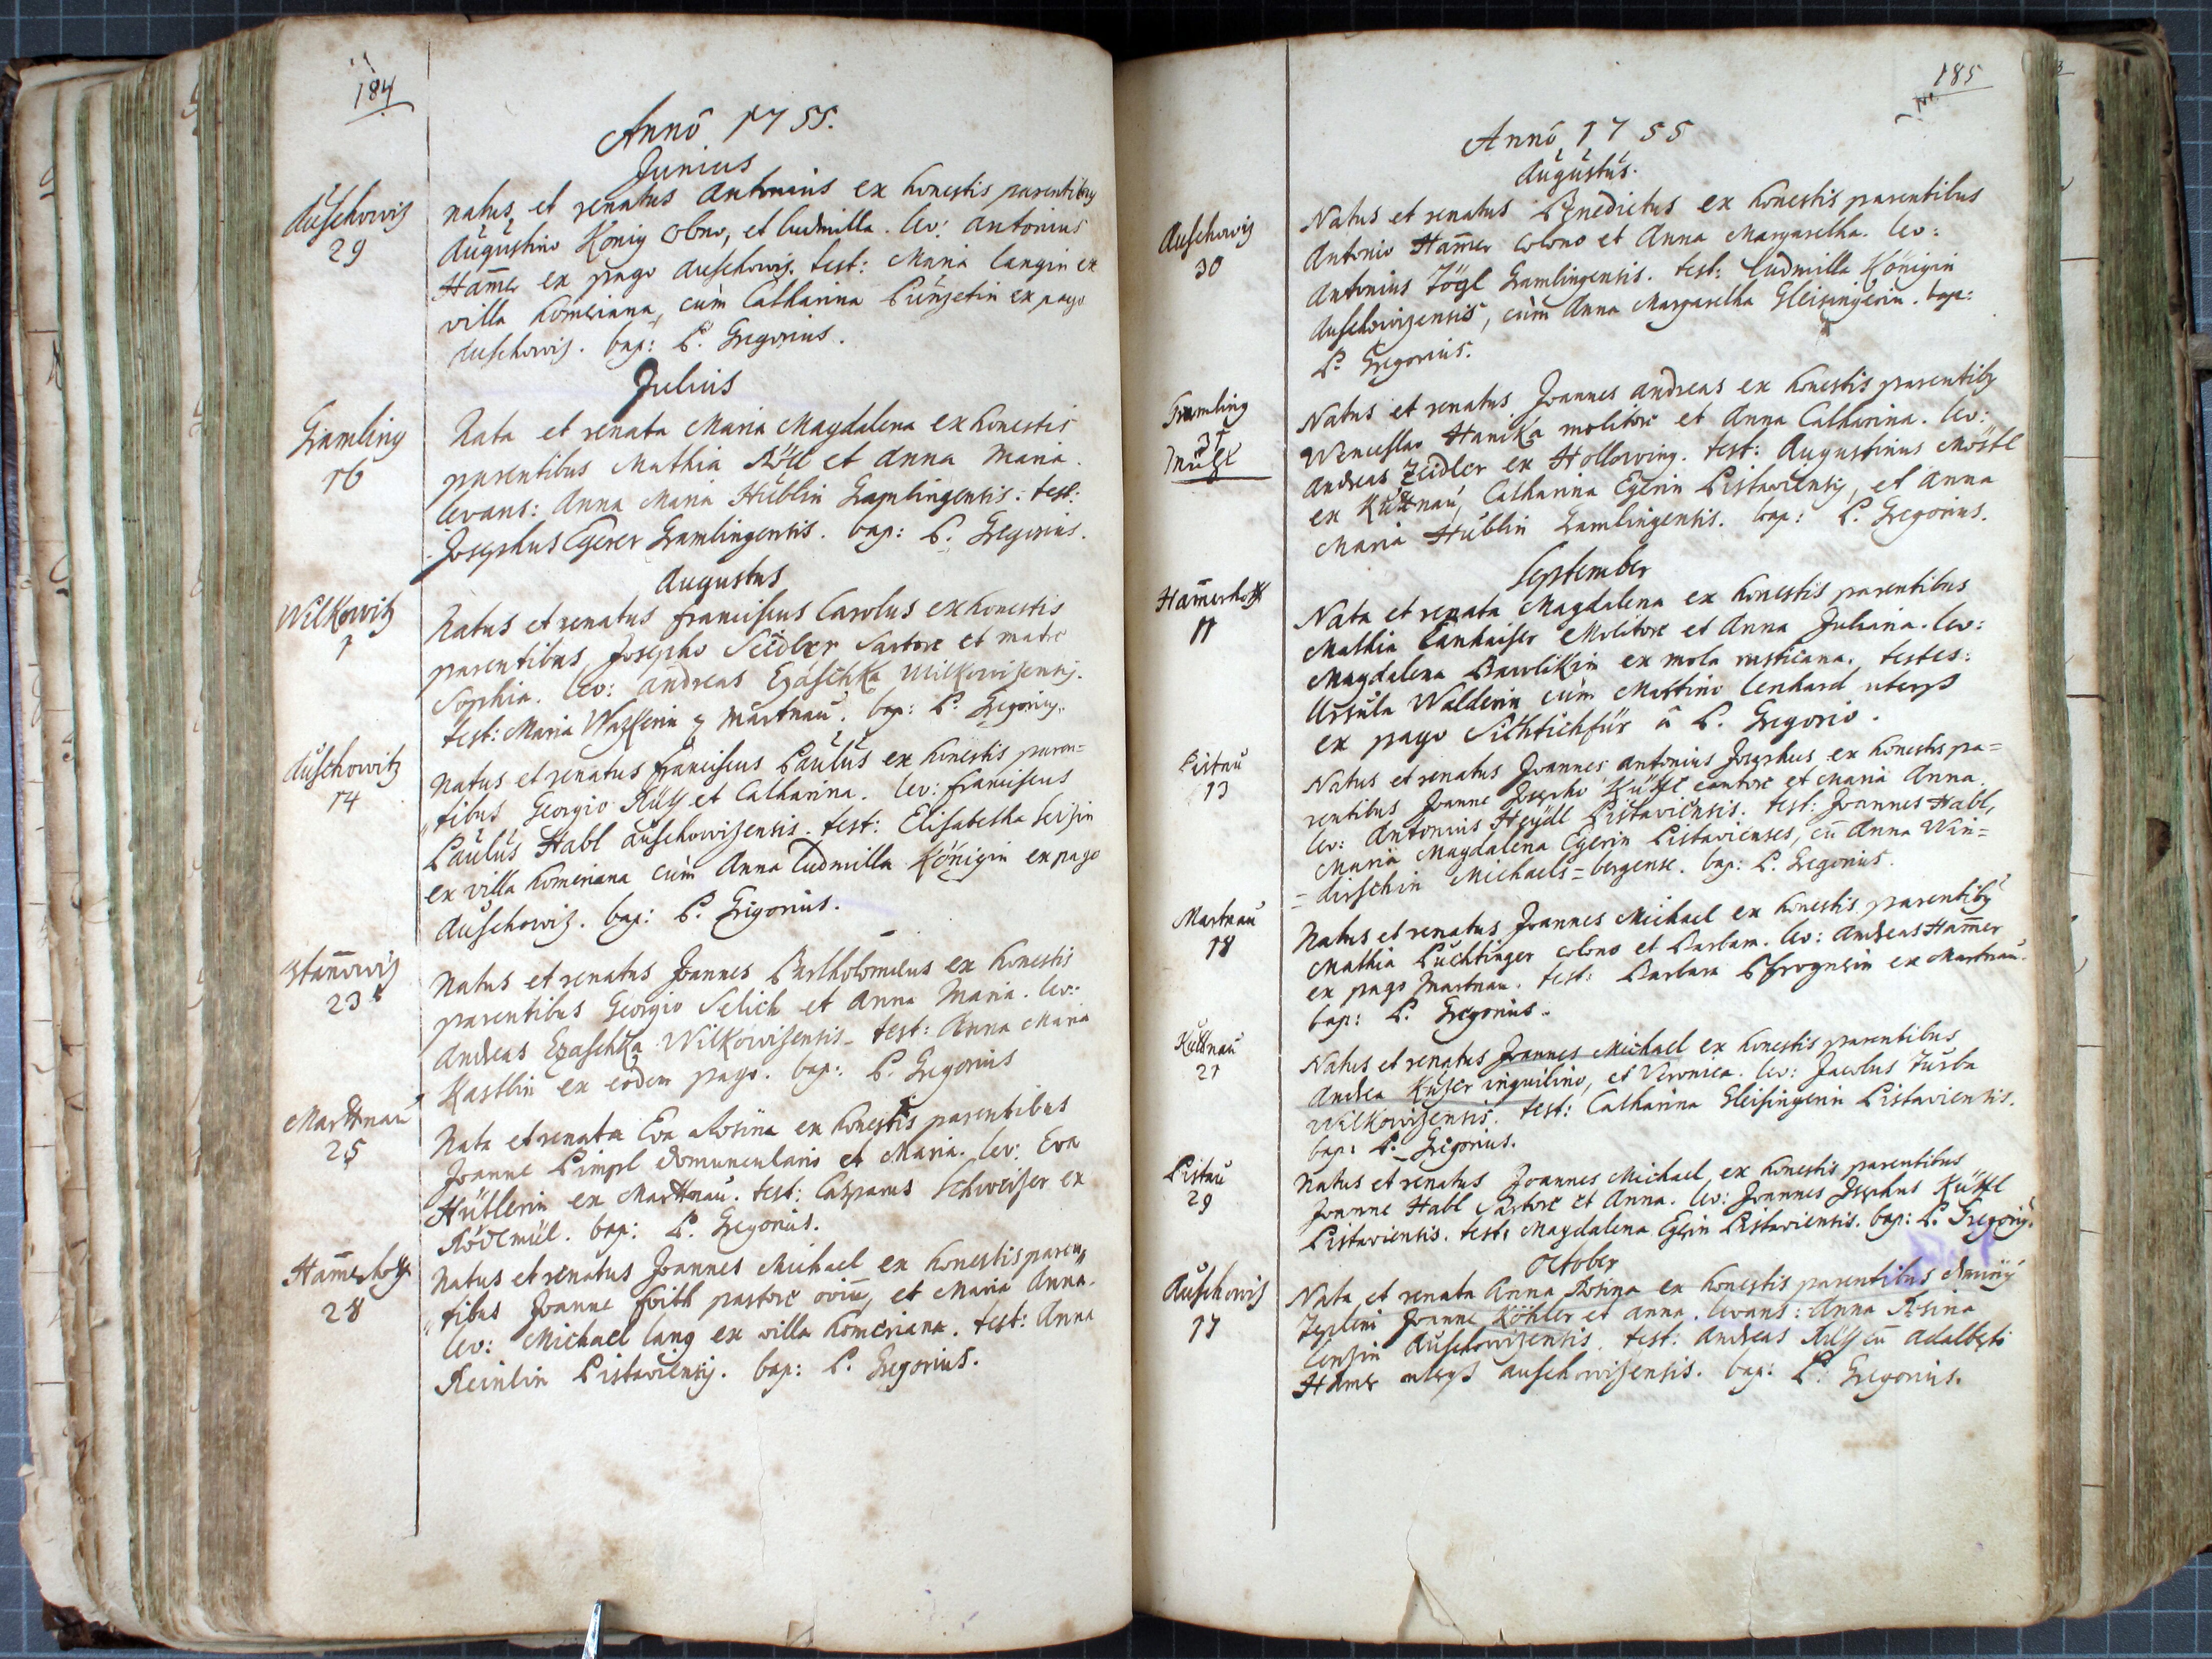 184
Anno 1755.
Junius
Auschowiz
29
natus et renatus Antonius ex honestis parentibus
Augustino König colono, et Ludmilla. lev: Antonius
Ham̄er ex pago Auschowiz. test: Maria Langin ex
villa homeriana, cum Catharina ex pago
Auschowiz. bap: P. Gregorius.
Julius
Gramling
16
Nata et renata Maria Magdalena ex honestis
parentibus Mathia et Anna Maria.
levans: Anna Maria Hüblin Gramlingensis: test:
Josephus Egerer Gramlingensis. bap: P. Gregorius.
Augustus
Wilkowitz
1
Natus et renatus Franciscus Carolus ex honestis
parentibus Josepho Seidler Sartore et matre
Sophia. lev: Andreas Wilkowizensis.
test: Maria Martnau. bap: P. Gregorius.
Auschowitz
14
Natus et renatus Franciscus Paulus ex honestis paren=
tibus Georgio et Catharina. lev: Franciscus
Paulus Habl Auschowizensis. test: Elisabetha
ex villa homeriana cum Anna Ludmilla Königin ex pago
Auschowiz. bap: P. Gregorius.
Stan̄owiz
23
Natus et renatus Joannes Bartholomæus ex honestis
parentibus Georgio Selich et Anna Maria. lev:
Andreas Wilkowizensis. test: Anna Maria
Kastlin ex eodem pago. bap: P. Gregorius
Marttnau
25
Nata et renata Eva Rosina ex honestis parentibus
Joanne Pimpl domunculario et Maria. lev: Eva
Hüttlerin ex Marttnau. test: Casparus Schweiser ex
bap: P. Gregorius.
Ham̄erhoff
28
Natus et renatus Joannes Michael ex honestis paren
tibus Joanne Foith pastore oviū, et Maria Anna.
lev: Michael Lang ex villa homeriana. test: Anna
Reinlin Pistaviensis. bap: P. Gregorius.
185
Anno 1755
Augustus.
Auschowiz
30
Natus et renatus Benedictus ex honestis parentibus
Antonio Ham̄er colono et Anna Margaretha. lev:
Antonius Zögl Gramlingensis. test: Ludmilla Königin
Auschowizensis, cum Anna Margaretha Gleisingerin. bap:
P. Gregorius.
Gramling
31
Natus et renatus Joannes Andreas ex honestis parentibus
Wenceslao Hanika molitore et Anna Catharina. lev:
Andreas Zeidler ex Hollowing. test: Augustinus Möstl
ex Kuttnau, Catharina Egerin Pistaviensis, et Anna
Maria Hüblin Gramlingensis. bap: P. Gregorius.
September
Ham̄erhoff
11
Nata et renata Magdalena ex honestis parentibus
Mathia Molitore et Anna Juliana. lev:
Magdalena Pawlikin ex mola rusticana. testes:
Ursula Walderin cum Martino Lenhard
ex pago Sichtichfür â P. Gregorio.
Pistau
13
Natus et renatus Joannes Antonius Josephus ex honestis pa=
rentibus Joanne Josepho Küttl cantore et Maria Anna.
lev: Antonius Heydl Pistaviensis. test: Joannes Habl,
Maria Magdalena Egerin Pistavienses, cū Anna Win=
=dirschin Michaels=bergense. bap: P. Gregorius.
Martnau
18
Natus et renatus Joannes Michael ex honestis parentibus
Mathia Puchtinger colono et Barbara. lev: Andreas Ham̄er
ex pago Martnau. test: Barbara ex Martnau.
bap: P. Gregorius.
Kuttnau
21
Natus et renatus Joannes Michael ex honestis parentibus
Andrea inquilino, et Veronica. lev: Jacobus
Wilkowizensis. test: Catharina Gleisingerin Pistaviensis.
bap: P. Gregorius.
Pistau
29
Natus et renatus Joannes Michael ex honestis parentibus
Joanne Habl Sartore et Anna. lev: Joannes Josephus Küttl
Pistaviensis. test: Magdalena Egerin Pistaviensis. bap: P. Gregorius.
October
Auschowiz
17
Nata et renata Anna Rosina ex honestis parentibus
Joanne Köhler et Anna. levans: Anna Rosina
Auschowizensis. test: Andreas cū Adalberto
Hamer Auschowizensis. bap: P. Gregorius.